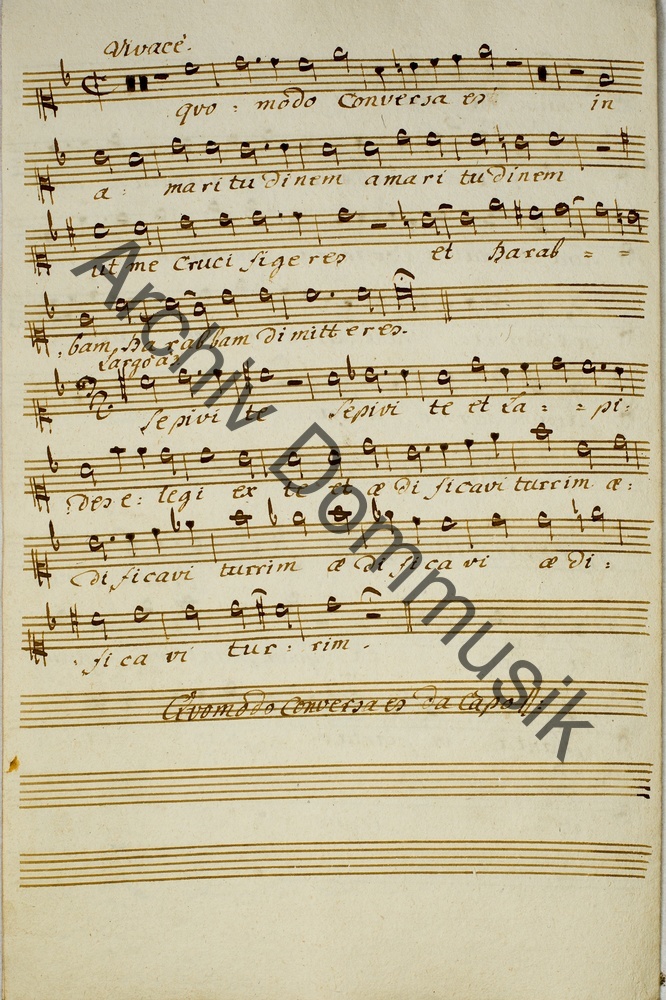 Vivacè.
quo : modo Conversa es in
a : maritudinem amari tudinem
ut me Cruci figeres et Barab = =
bam, Barabbam dimitteres.
Largo
sepivi te sepivi te et La = = pi:
des e: legi ex te et ædificavi turrim æ:
dificavi turrim ædificavi ædi:
ficavi tur: rim.
Quomodo Conversa es da Capo
Archiv Dommusik